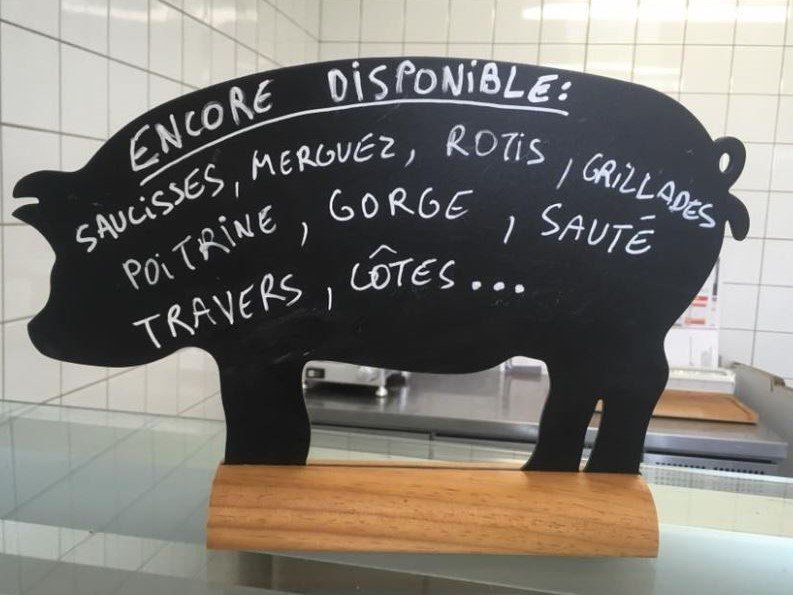 ENCORE DISPONIBLE:
SAUCISSES, MERGUEZ, ROTIS, GRILLADES
POITRINE, GORGE, SAUTÉ
TRAVERS, CÔTES...